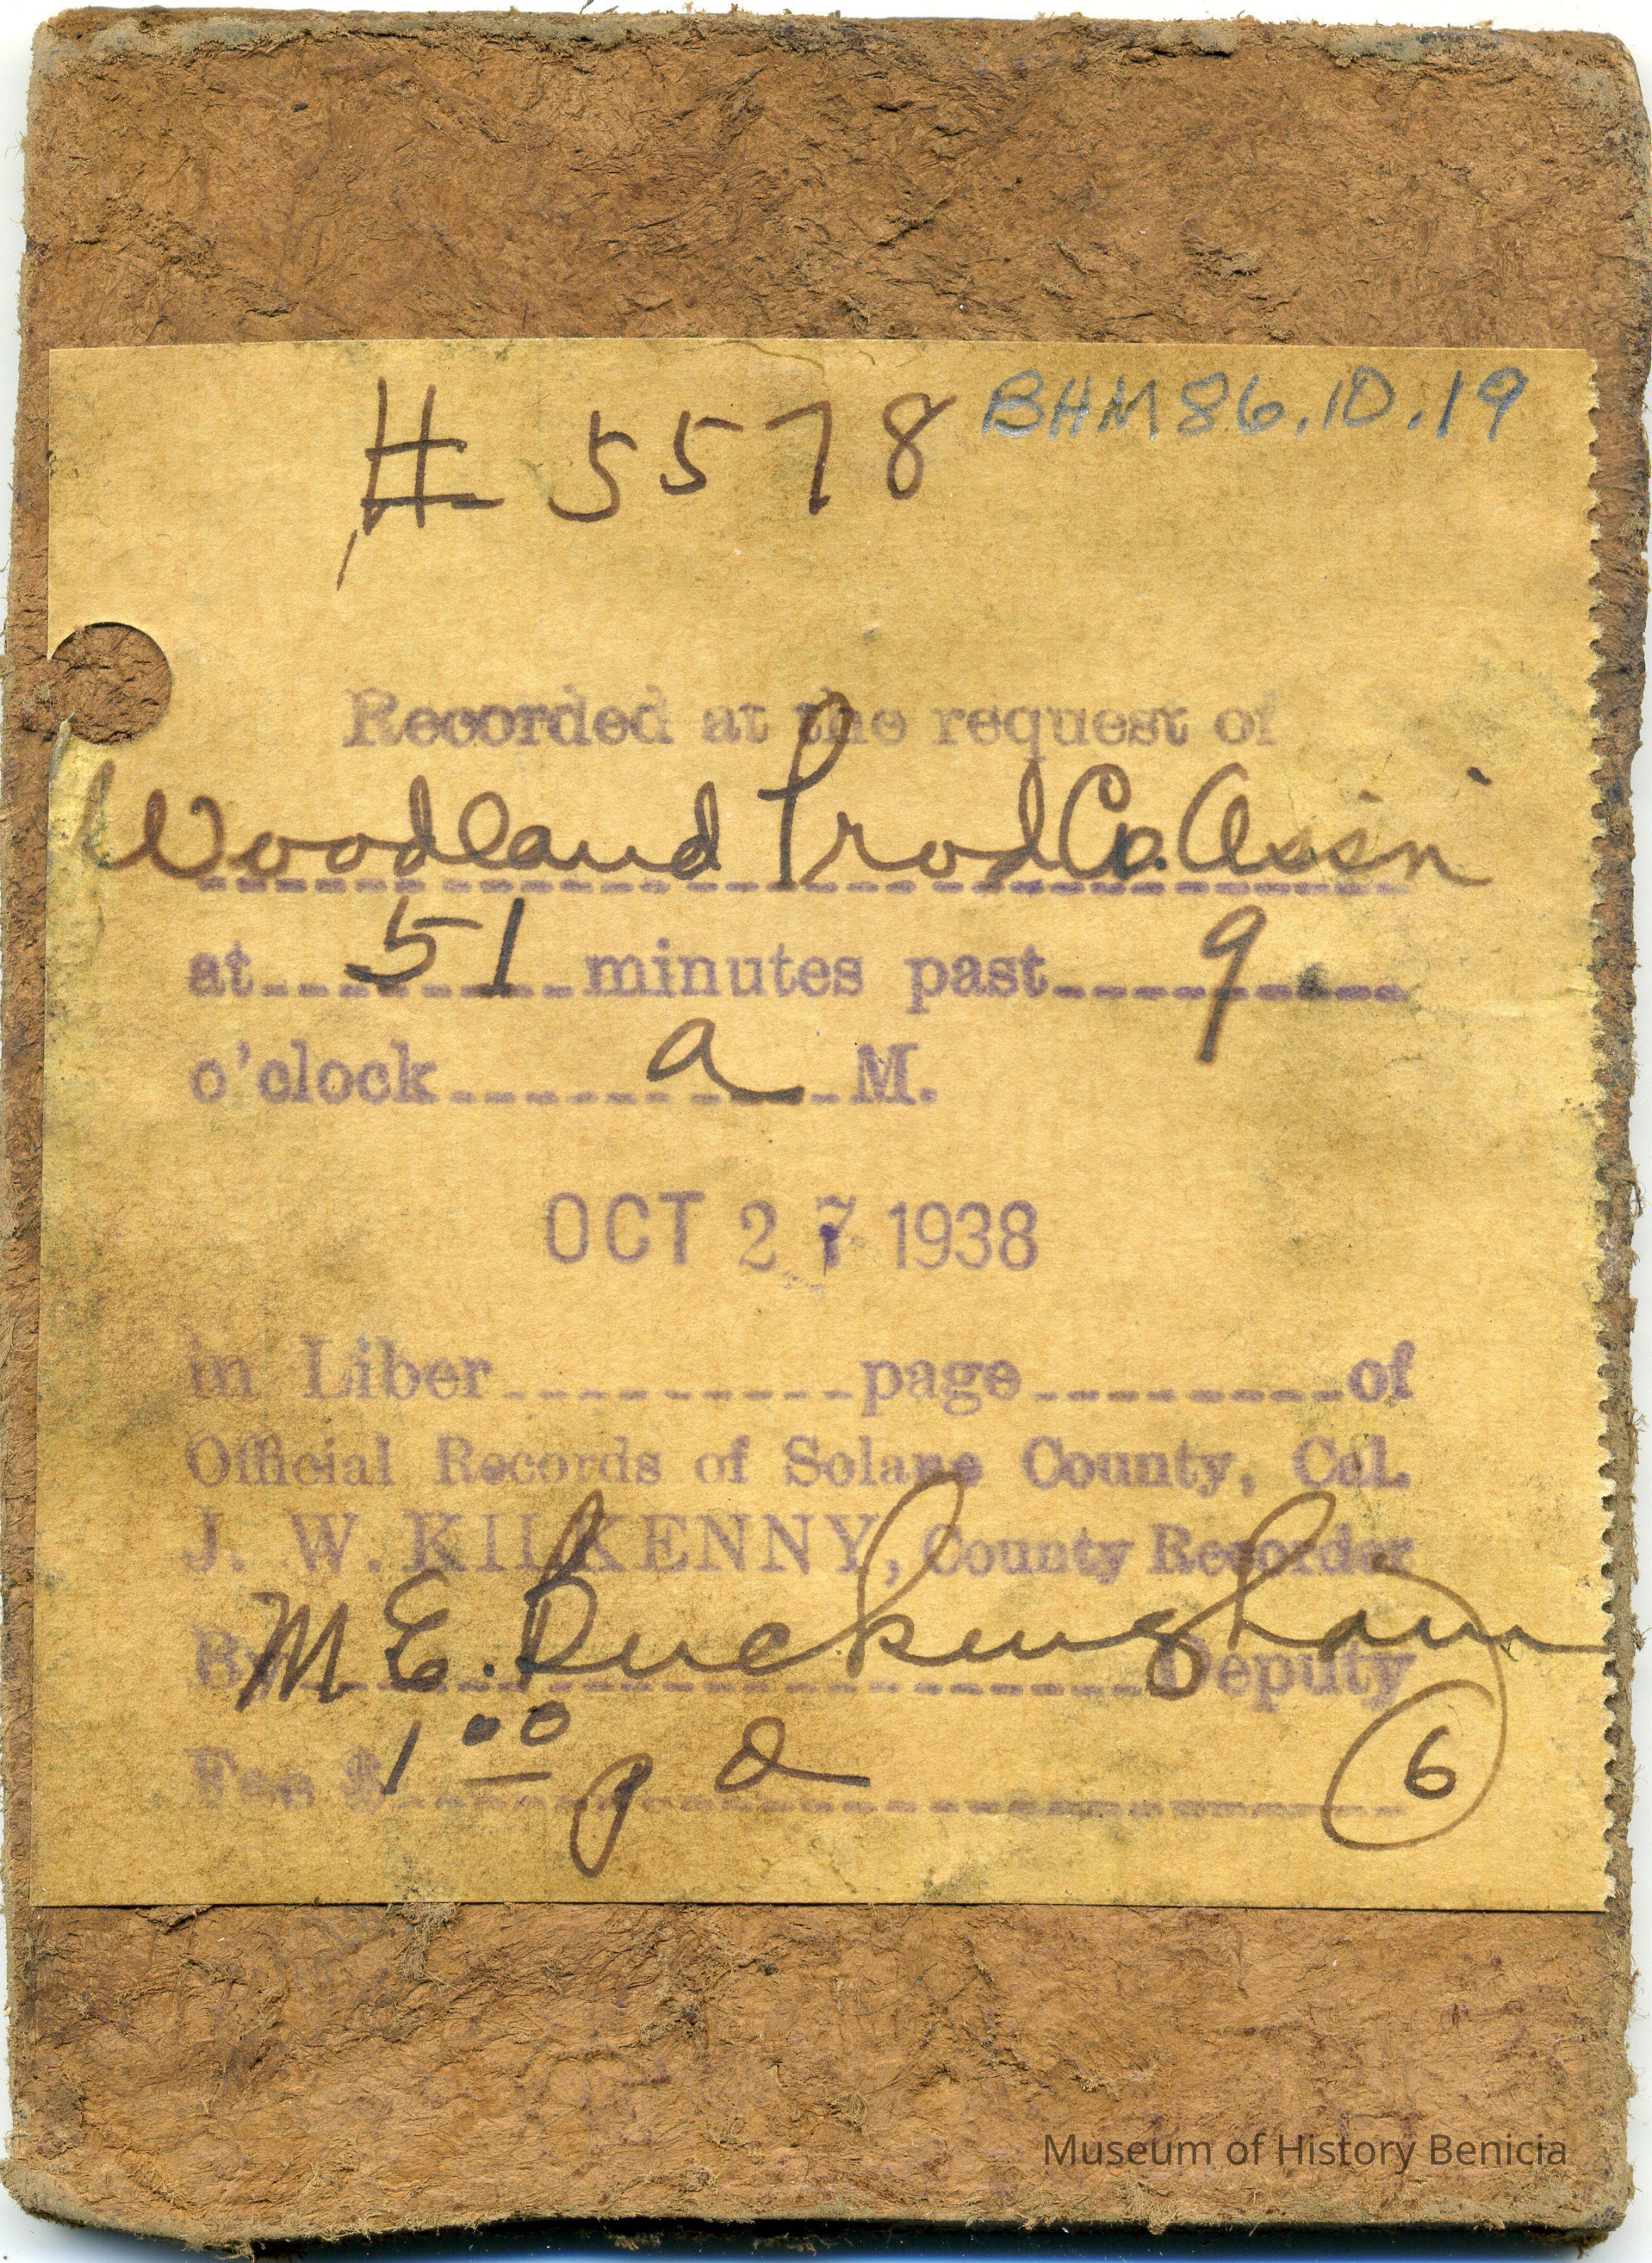 # 5578 BHM 86.10.19
Recorded at the request of
Woodland Prod Co. Assn
at 51 minutes past 9
o'clock a M.
OCT 27 1938
in Liber page of
Official Records of Solano County, Cal.
J. W. KILKENNY, County Recorder
By M E. Buckingham Deputy
Fee $ 1 00 pd
6
Museum of History Benicia